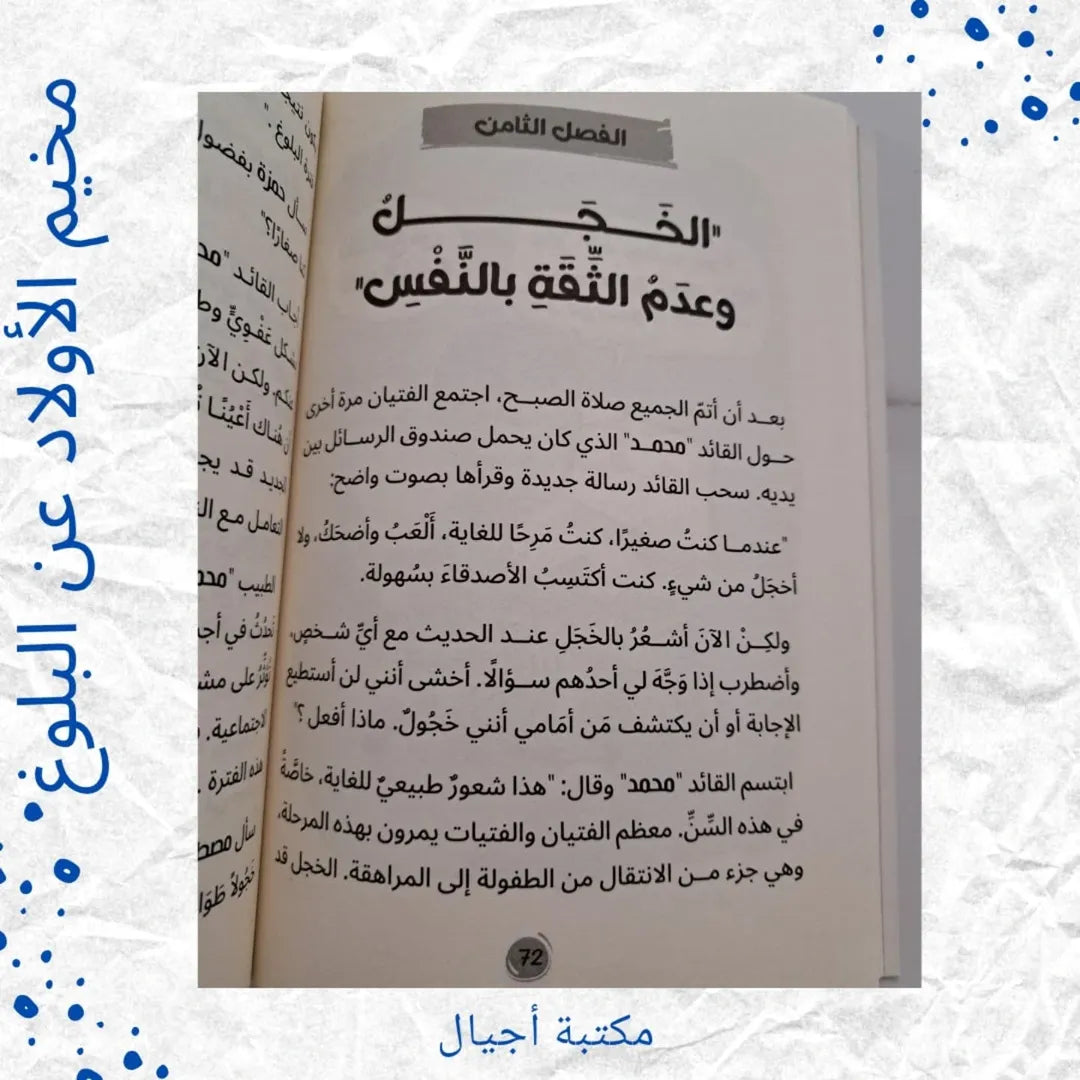 مخيم الأولاد عن البلوغ
الفصل الثامن
"الخَـــجَـــــلُ
وعدَمُ الثِّقَةِ بالنَّفْسِ"
بعـد أن أتمّ الجميع صلاة الصبـح، اجتمع الفتيان مرة أخرى
حـول القائد "محمـد" الذي كان يحمل صندوق الرسـائل بين
يديه. سحب القائد رسالة جديدة وقرأها بصوت واضح:
"عندمـا كنتُ صغيرًا، كنتُ مَرِحًا للغاية، أَلْعَبُ وأضحَكُ، ولا
أخجَلُ من شيءٍ. كنت أكتَسِبُ الأصدقاءَ بسُهولة.
ولكِنْ الآنَ أشعُرُ بالخَجَلِ عنـد الحديث مع أيِّ شـخصٍ،
وأضطرب إذا وَجَّهَ لي أحدُهم سـؤالًا. أخشى أنني لن أستطيع
الإجابة أو أن يكتشف مَن أمَامي أنني خَجُولٌ. ماذا أفعل؟"
ابتسم القائد "محمد" وقال: "هذا شعورٌ طبيعيٌ للغاية، خاصَّةً
في هذه السِّنِّ. معظم الفتيان والفتيات يمرون بهذه المرحلة،
وهي جزء مـن الانتقال من الطفولة إلى المراهقة. الخجل قد
72
البلوغ ."
سأل حمزة بفضول
صغارًا؟"
القائد
عَفْوِيٍّ
ولكن الآن
هُناك أَعْيُنًا
قد
التعامل مـع
الطبيب
في
على
الاجتماعية.
هذه الفترة .
سأل
خَجُولاً
مكتبة أجيال